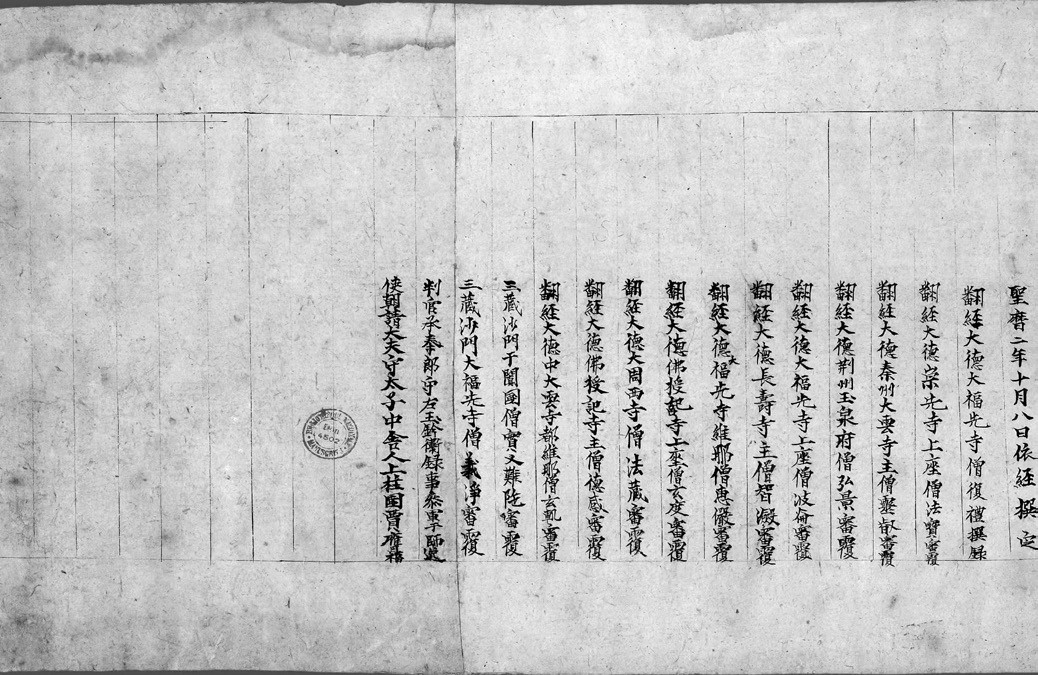 聖曆二年十月八日依經撰定
翻經大德大福先寺僧復禮撰錄
翻經大德崇先寺上座僧法寶審覆
翻經大德秦州大雲寺主僧叡審覆
翻經大德荆州玉泉府僧弘景審覆
翻經大德大福先寺上座僧波崙審覆
翻經大德長壽寺主僧智潊審覆
翻經大德大福先寺維那僧惠儼審覆
翻經大德佛授記寺上座僧玄度審覆
翻經大德大周西寺僧法藏審覆
翻經大德佛授記寺主僧德感審覆
翻經大德中大雲寺都維那僧玄軌審覆
三藏沙門于闐國僧實叉難陁審覆
三藏沙門大福先寺僧義淨審覆
判官承奉郎守左玉鈐衛錄事參軍于師
使朝請大夫守太子中舍人上柱國賈膺福